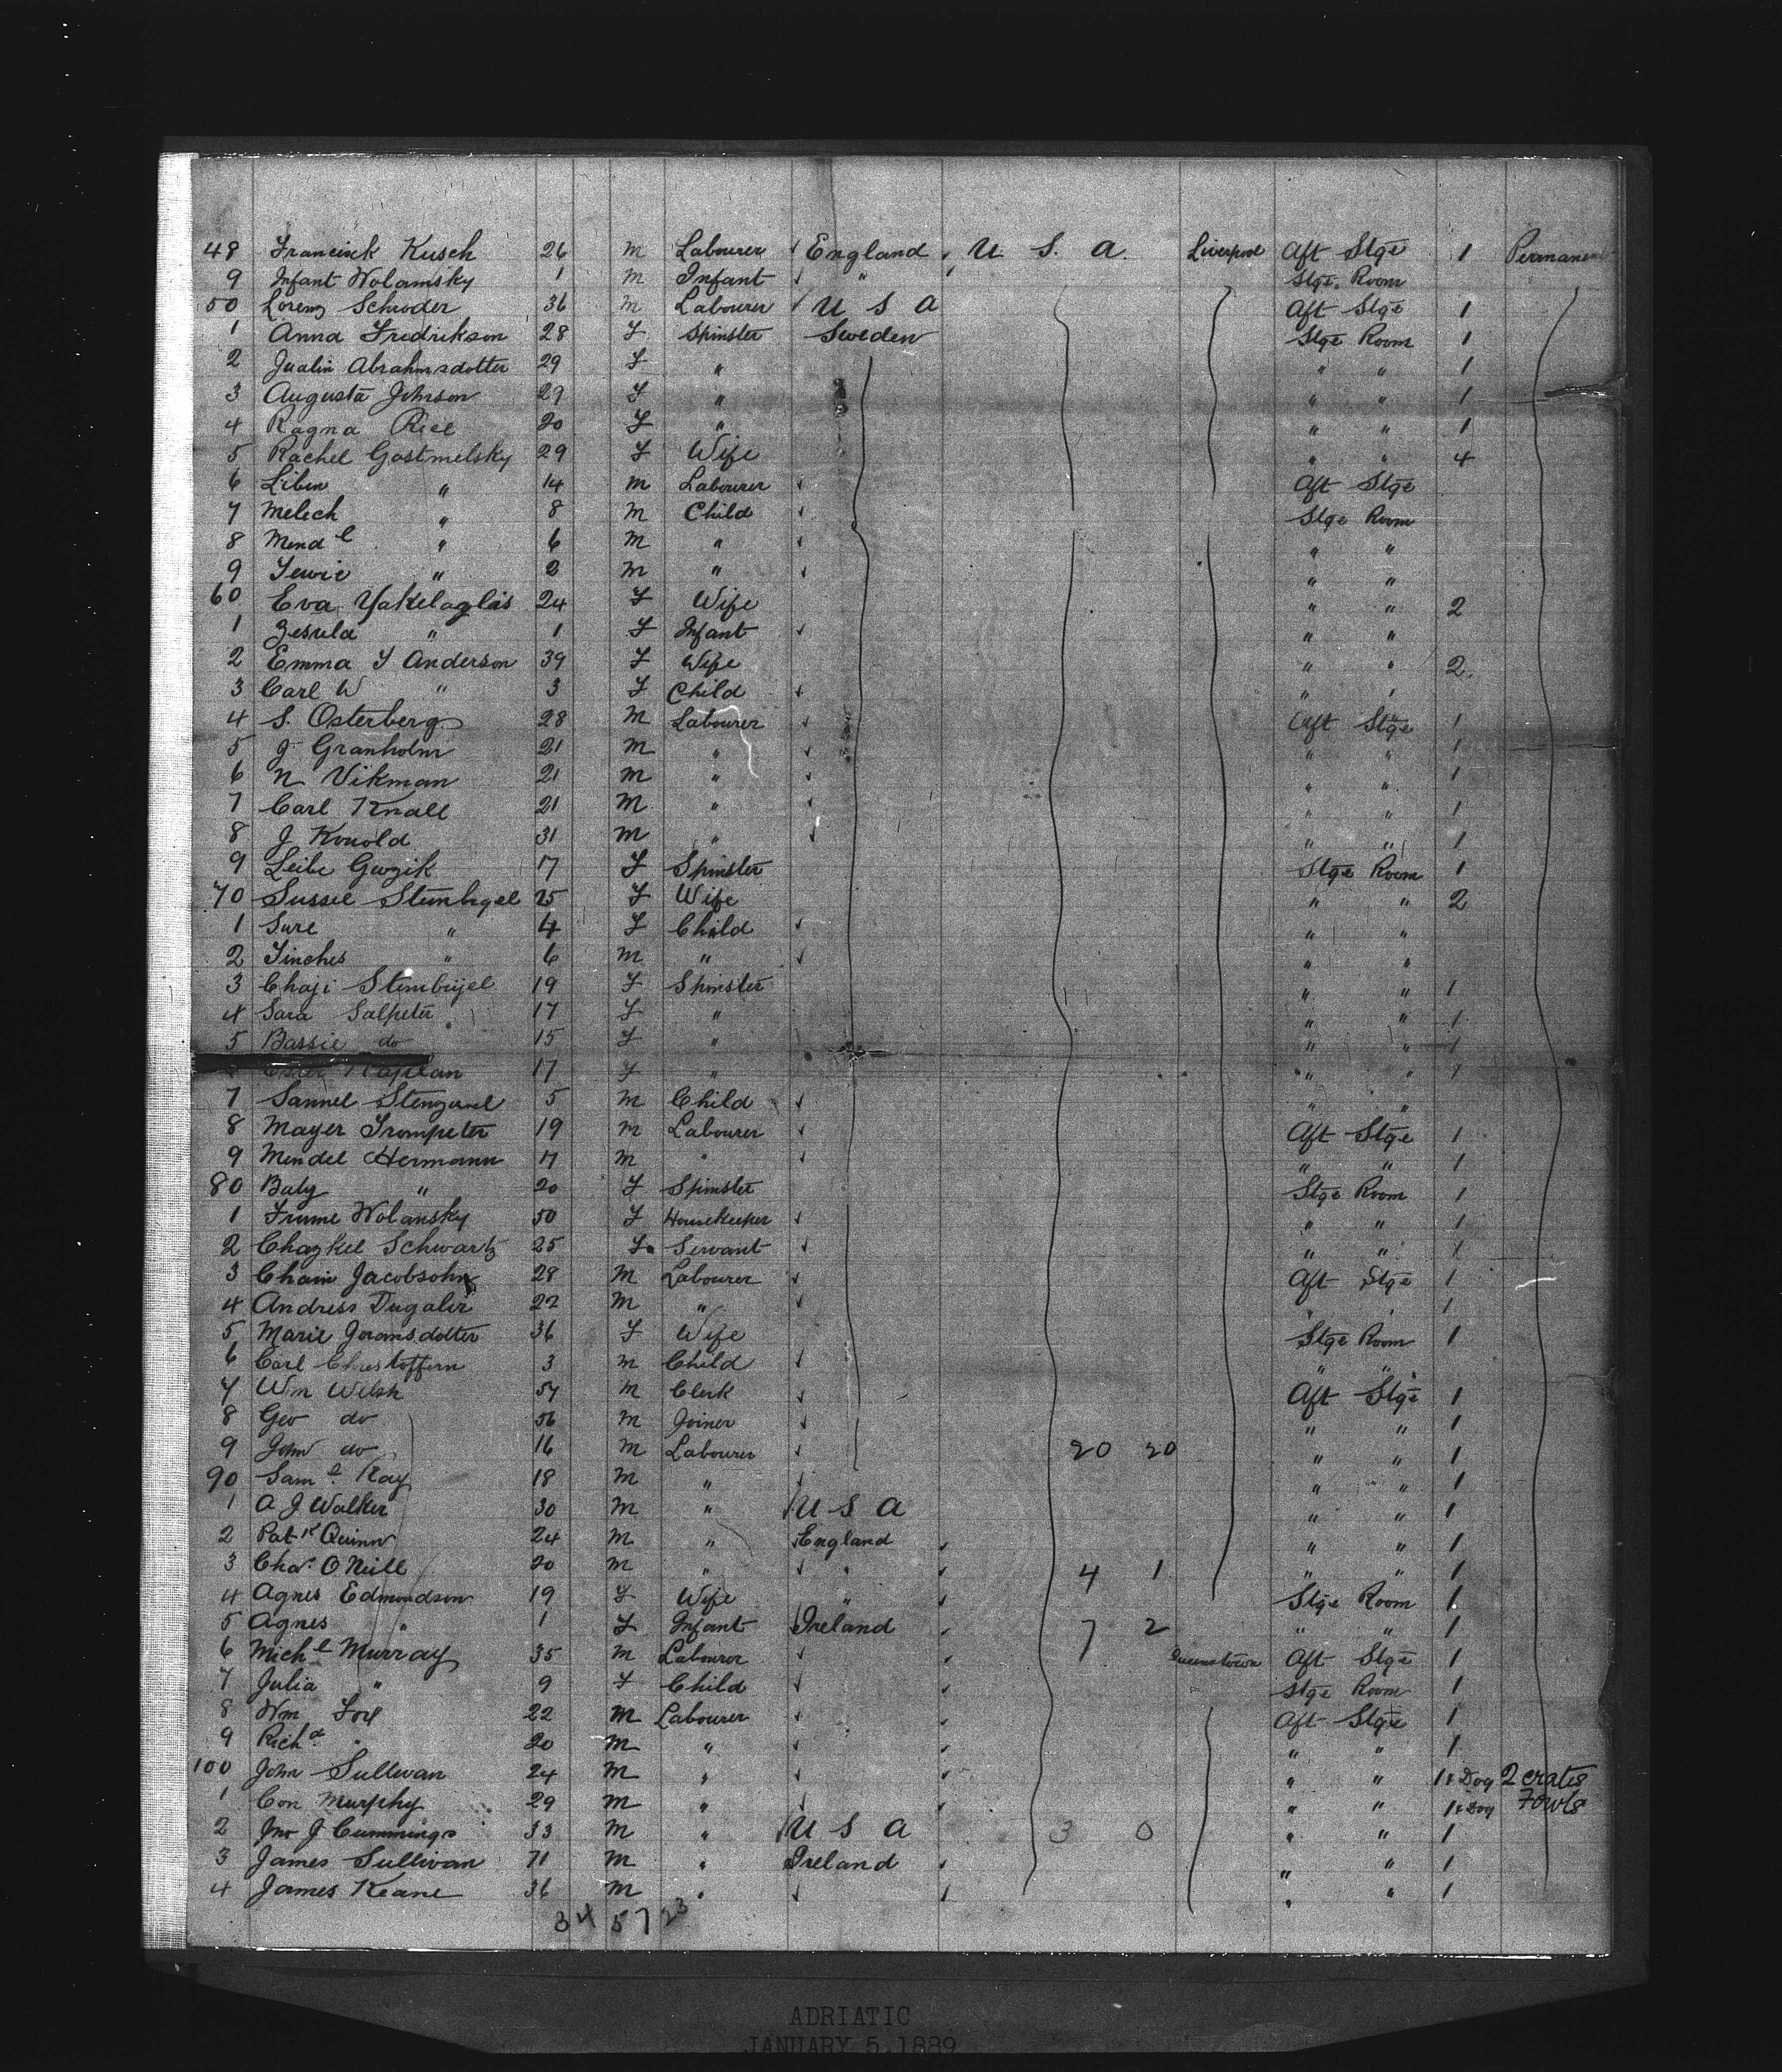 48 Francisek Kusch 26 M Labourer England U. S. A. Liverpool Aft Stge 1 Permanent
9 Infant Wolamsky 1 M Infant " Stge. Room
50 Lorenz Schroder 36 M Labourer U S A Aft Stge 1
1 Anna Fredrikson 28 F Spinster Sweden Stge Room 1
2 Abrahmsdotter 29 F " " " 1
3 Augusta Johnson 29 F " " " 1
4 Ragna Rice 20 F " " " 1
5 Rachel Gostmelsky 29 F Wife " " 4
6 Libin " 14 M Labourer Aft Stge
7 Melech " 8 M Child Stge Room
8 Mendl " 6 M " " "
9 " 2 M " " "
60 Eva Yakelaglis 24 F Wife " " 2
1 Zesula " 1 F Infant " "
2 Emma F Anderson 39 F Wife " " 2
3 Carl W " 3 F Child " "
4 S. Osterberg 28 M Labourer Aft Stge 1
5 J Granholm 21 M " " " 1
6 N Vikman 21 M " " " 1
7 Carl Knall 21 M " " " 1
8 J 31 M " " " 1
9 Leibe Guzik 17 F Spinster Stge Room 1
70 Sussie 25 F Wife " " 2
1 Sure " 4 F Child " "
2 Finches " 6 M " " "
3 Chaji 19 F Spinster " " 1
4 Sara Salpeter 17 F " " " 1
5 Bassie do 15 F " " " 1
Kaplan 17 F " " " 1
7 Samuel 5 M Child " "
8 Mayer Trompeter 19 M Labourer Aft Stge 1
9 Mendel Hermann 17 M " " " 1
80 Baly " 20 F Spinster Stge Room 1
1 Frume Wolansky 50 F Housekeeper " " 1
2 Chazkel Schwartz 25 F Servant " " 1
3 Chaim Jacobsohn 28 M Labourer Aft Stge 1
4 Andress 22 M " " " 1
5 Marie 36 F Wife Stge Room 1
6 Carl 3 M Child " "
7 Wm Welsh 57 M Clerk Aft Stge 1
8 Geo do 56 M Joiner " " 1
9 John do 16 M Labourer 20 20 " " 1
90 Saml Kay 18 M " " " 1
1 A J Walker 30 M " U S A " " 1
2 Patk Quinn 24 M " England " " 1
3 Chas. O'Neill 20 M " " 4 1 " " 1
4 Agnes Edmondson 19 F Wife " Stge Room 1
5 Agnes " 1 F Infant Ireland 7 2 " " 1
6 Michl Murray 35 M Labourer Queenstown Aft Stge 1
7 Julia " 9 F Child Stge Room 1
8 Wm 22 M Labourer Aft Stge 1
9 Richd " 20 M " " " 1
100 John Sullivan 24 M " " " 1 & Dog 2 crates
1 Con Murphy 29 M " " " 1 & Dog Fowls
2 Jno J Cummings 33 M " U S A 3 0 " " 1
3 James Sullivan 71 M " Ireland " " 1
4 James Keane 36 M " " " 1
34 57 23
ADRIATIC
JANUARY 5, 1889